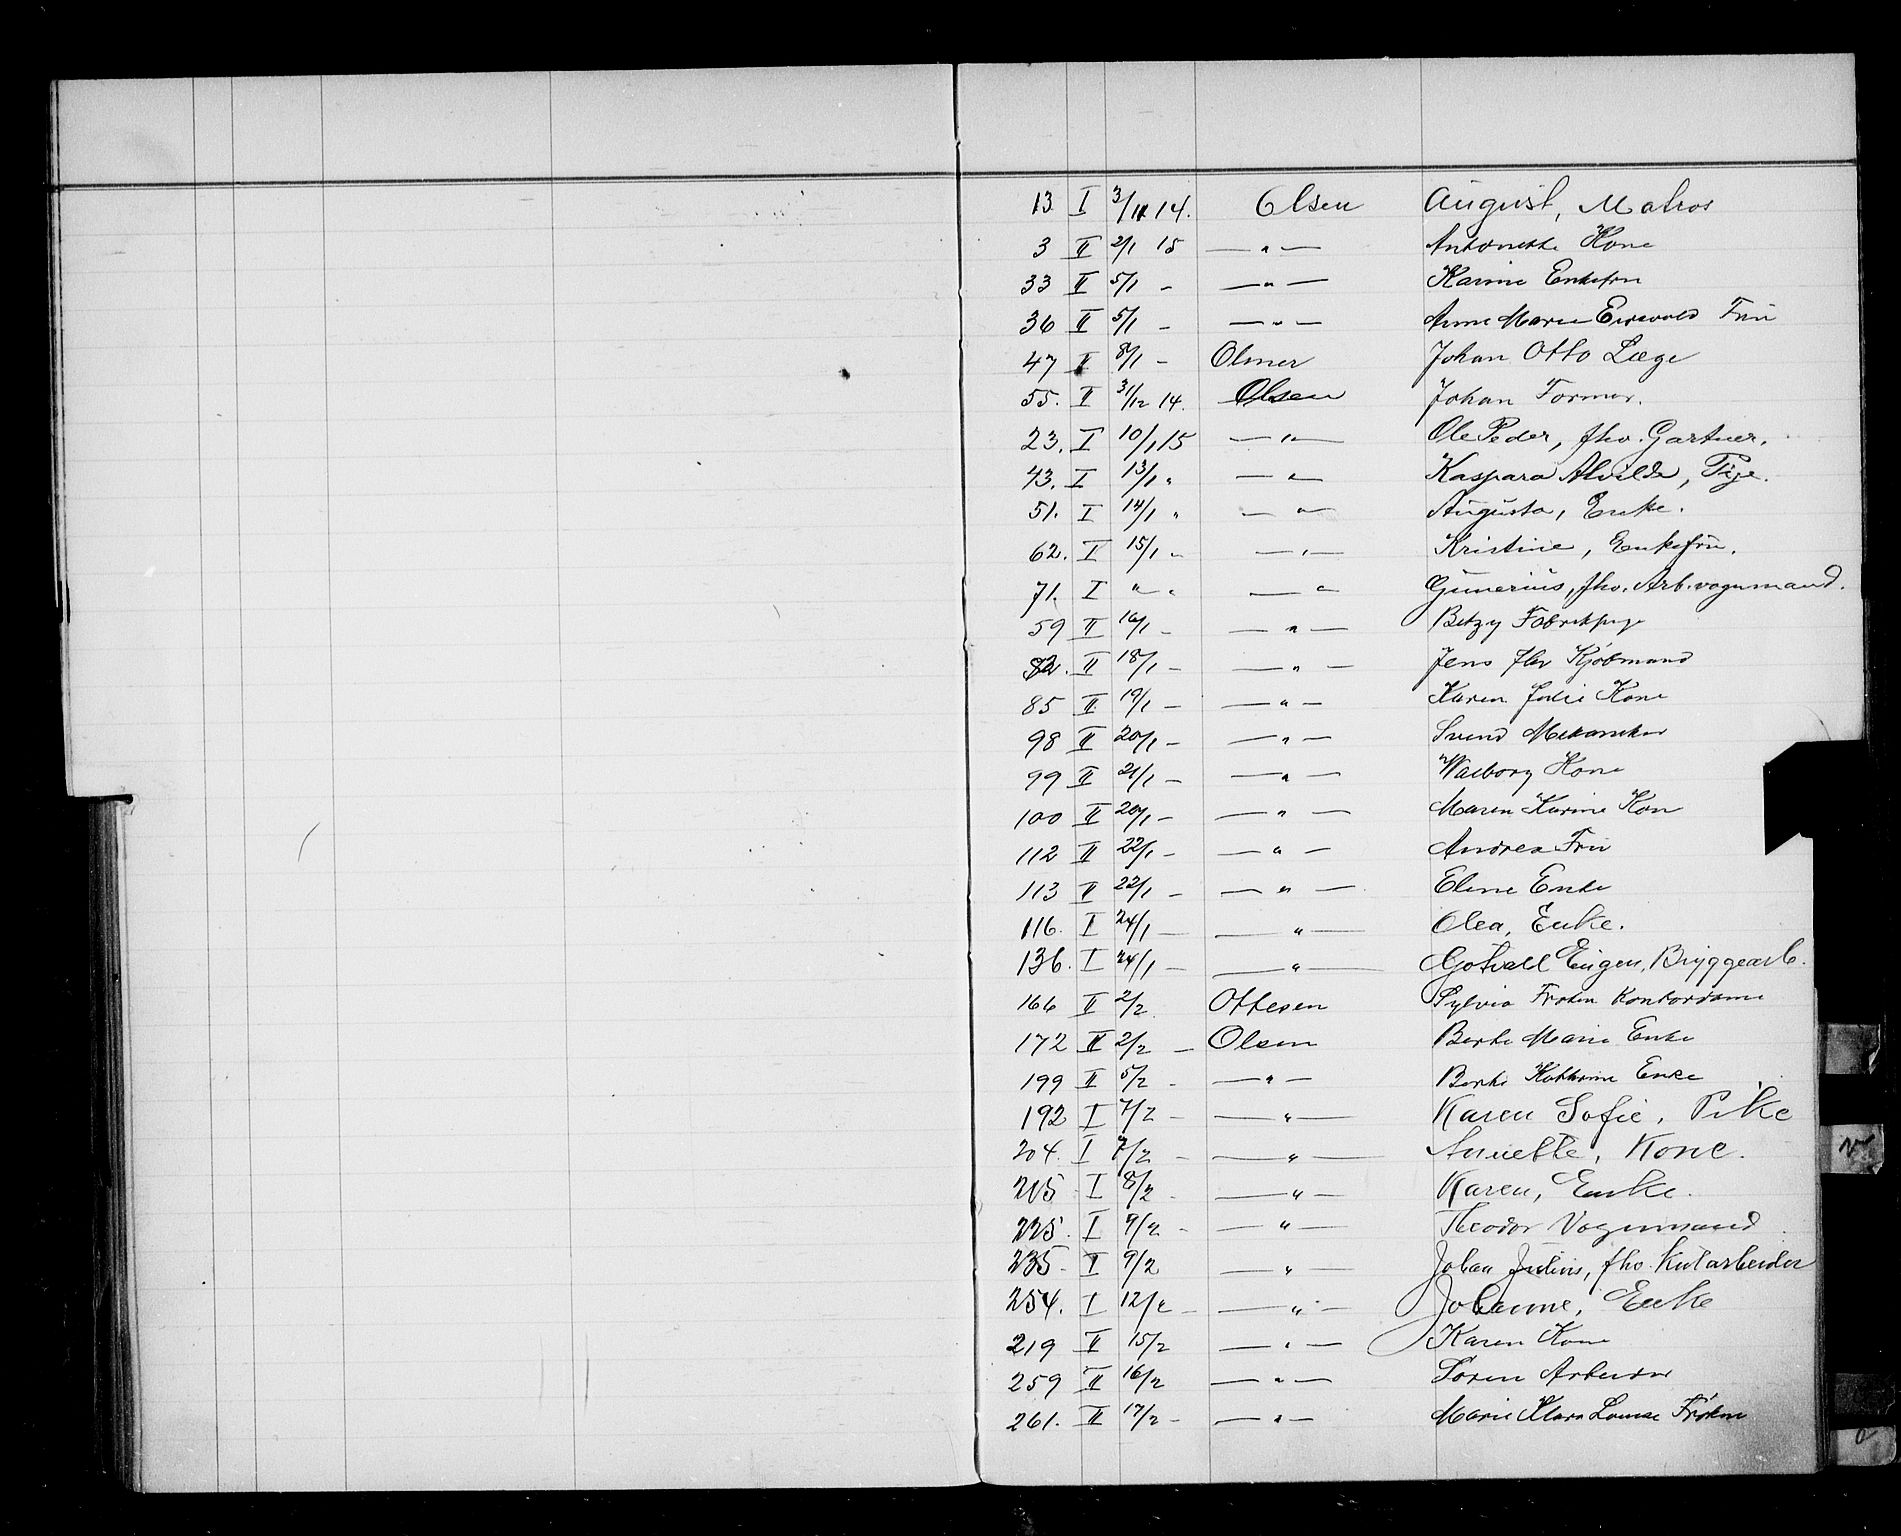 13 I 3/11 14. Olsen August, Matros
3 II 2/1 15 — " — Antonette Kone
33 II 5/1 - — " — Karine Enkefru
36 II 5/1 - — " — Anne Marie Fru
47 II 8/1 - Olmer Johan Otto Læge
55. II 31/12 14. Olsen Johan Former.
23. I 10/1 15 — " — Ole Peder, fhv. Gartner.
43. I 13/1 " — " — Kaspara Alvilde, Pige.
51. I 14/1 " — " — Augusta, Enke.
62. I 15/1 " — " — Kristine, Enkefru.
71. I " " — " — Gunerius, fhv. Arb. vognmand.
59 II 16/1 - — " — Betzy Fabrikpige
82. II 18/1 - — " — Jens fhv Kjøbmand
85 II 19/1 - — " — Karen Julie Kone
98 II 20/1 - — " — Svend Mekaniker
99 II 21/1 - — " — Valborg Kone
100 II 20/1 - — " — Maren Karine Kone
112 II 22/1 - — " — Andrea Fru
113 II 22/1 - — " — Eline Enke
116. I 24/1 — — " — Olea, Enke.
136. I 24/1 — — " — Gotvall Eugen, Bryggearb.
166 II 2/2 Ottesen Sylvia Frøken Kontordame
172 II 2/2 — Olsen Berte Marie Enke
199 II 5/2 - — " — Berte Kathrine Enke
192 I 7/2 - — " — Karen Sofie, Pike
204. I 7/2 - — " — Annette, Kone.
215 I 8/2 - — " — Karen, Enke.
225. I 9/2 - — " — Theodor Vognmand
235. I 9/2 — " — Johan Julius, fhv. Kularbeider
254. I 12/2 - — " — Johanne, Enke
219 II 15/2 — " — Karen Kone
259 II 16/2 — " — Søren Arbeider
261. II 17/2 - — " — Marie Klara Louise Frøken